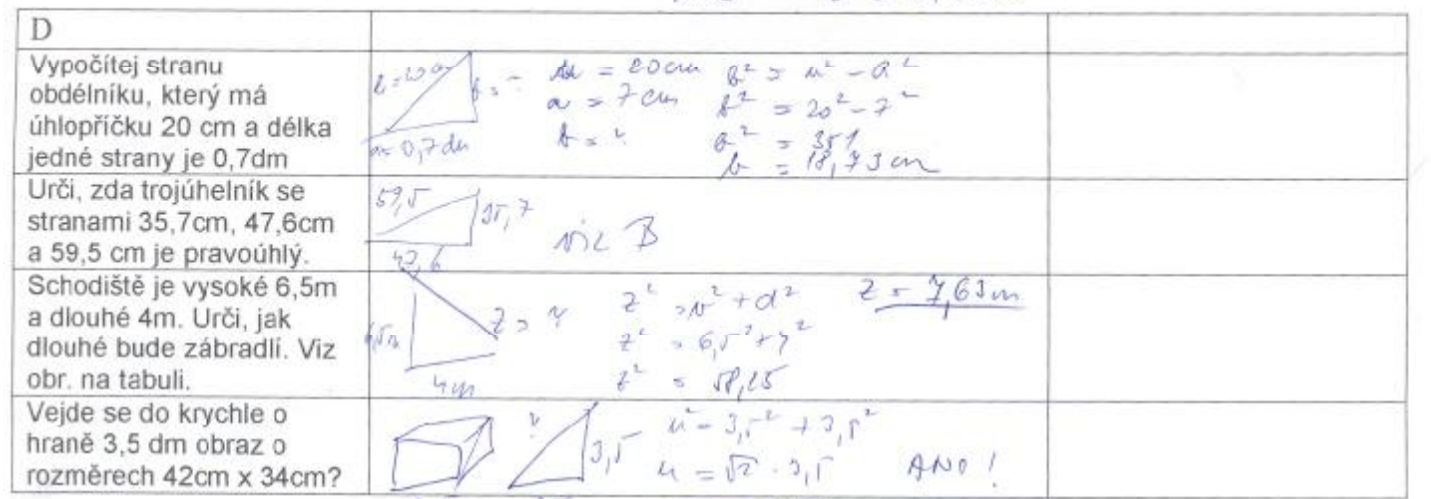 D
Vypočítej stranu
obdélníku, který má
úhlopříčku 20 cm a délka
jedné strany je 0,7dm
a = 0,7 dm
u = 20 cm
a = 7 cm
b = ?
b² = u² - a²
b² = 20² - 7²
b² = 351
b = 18,73 cm
Urči, zda trojúhelník se
stranami 35,7cm, 47,6cm
a 59,5 cm je pravoúhlý.
59,5
35,7
47,6
viz B
Schodiště je vysoké 6,5m
a dlouhé 4m. Urči, jak
dlouhé bude zábradlí. Viz
obr. na tabuli.
6,5m
4m
z = ?
z² = v² + d²
z² = 6,5² + 4²
z² = 58,25
z = 7,63m
Vejde se do krychle o
hraně 3,5 dm obraz o
rozměrech 42cm x 34cm?
?
3,5
u² = 3,5² + 3,5²
u = √2 · 3,5
ANO!